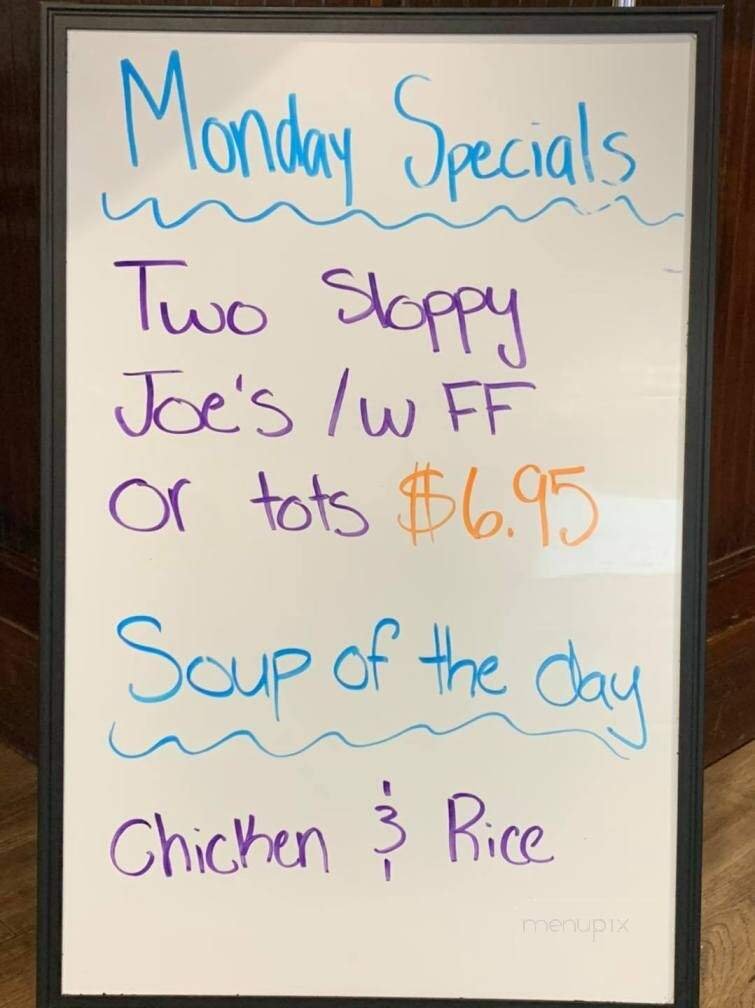 Monday Specials
Two Sloppy
Joe's /w FF
or tots $6.95
Soup of the day
Chicken & Rice
menupix